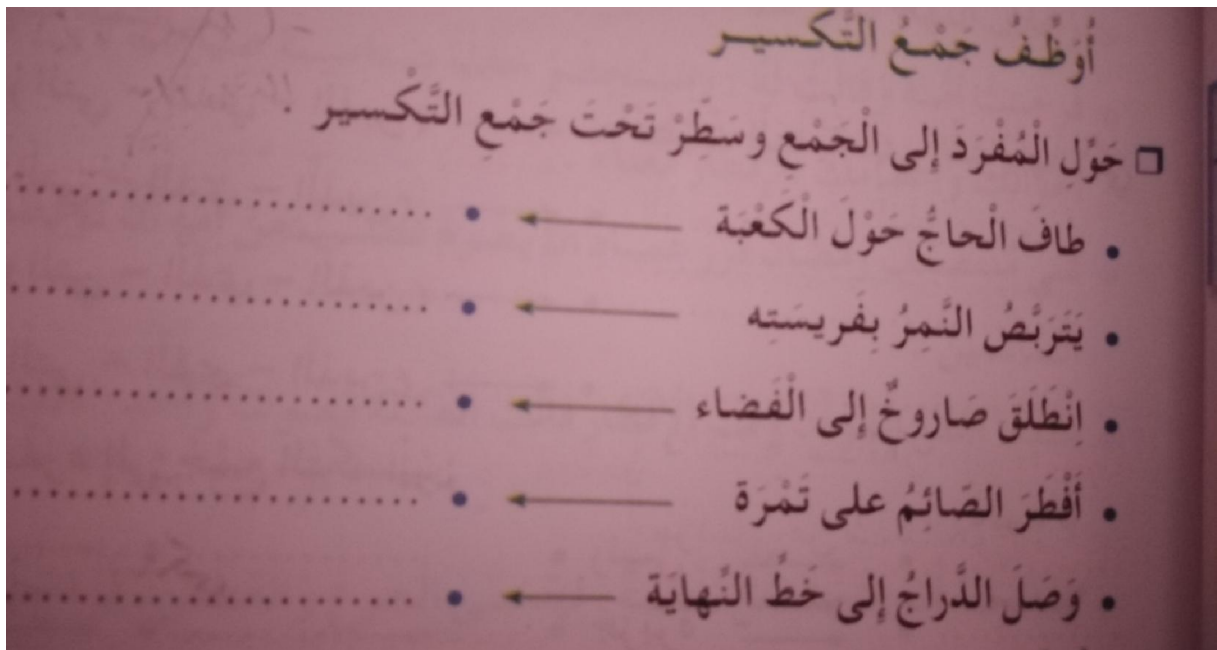 أُوَظِّفُ جَمْعُ التَّكسيـر
❒ حَوِّلِ الْمُفْرَدَ إلى الْجَمْعِ وسَطِّرْ تَحْتَ جَمْعِ التَّكْسير .
• طافَ الْحاجُّ حَوْلَ الْكَعْبَة ← • ..............................
• يَتَرَبَّصُ النَّمِرُ بِفَريسَتِه ← • ..............................
• اِنْطَلَقَ صَاروخٌ إلى الْفَضاء ← • ..............................
• أَفْطَرَ الصَّائِمُ على تَمْرَة ← • ..............................
• وَصَلَ الدَّراجُ إلى خَطِّ النِّهايَة ← • ..............................